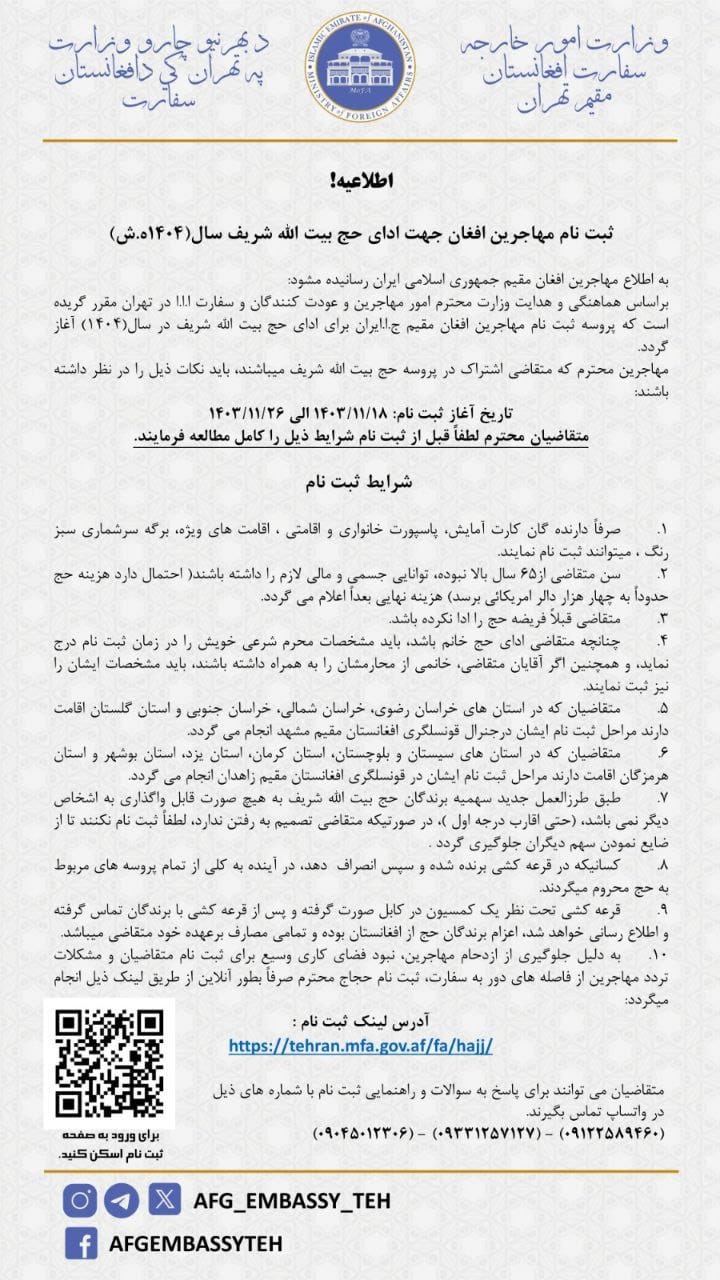 وزارت امور خارجه
سفارت افغانستان
مقیم تهران
ISLAMIC EMIRATE of AFGHANISTAN
MoFA
MINISTRY of FOREIGN AFFAIRS
د بهرنیو چارو وزارت
په تهران کي د افغانستان
سفارت
اطلاعیه!
ثبت نام مهاجرین افغان جهت ادای حج بیت الله شریف سال(۱۴۰۴ه.ش)
به اطلاع مهاجرین افغان مقیم جمهوری اسلامی ایران رسانیده مشود:
براساس هماهنگی و هدایت وزارت محترم امور مهاجرین و عودت کنندگان و سفارت ا.ا.ا در تهران مقرر گریده
است که پروسه ثبت نام مهاجرین افغان مقیم ج.ا.ایران برای ادای حج بیت الله شریف در سال(۱۴۰۴) آغاز
گردد.
مهاجرین محترم که متقاضی اشتراک در پروسه حج بیت الله شریف میباشند، باید نکات ذیل را در نظر داشته
باشند:
تاریخ آغاز ثبت نام: ۱۴۰۳/۱۱/۱۸ الی ۱۴۰۳/۱۱/۲۶
متقاضیان محترم لطفاً قبل از ثبت نام شرایط ذیل را کامل مطالعه فرمایند.
شرایط ثبت نام
۱. صرفاً دارنده گان کارت آمایش، پاسپورت خانواری و اقامتی ، اقامت های ویژه، برگه سرشماری سبز
رنگ ، میتوانند ثبت نام نمایند.
۲. سن متقاضی از۶۵ سال بالا نبوده، توانایی جسمی و مالی لازم را داشته باشند( احتمال دارد هزینه حج
حدوداً به چهار هزار دالر امریکائی برسد) هزینه نهایی بعداً اعلام می گردد.
۳. متقاضی قبلاً فریضه حج را ادا نکرده باشد.
۴. چنانچه متقاضی ادای حج خانم باشد، باید مشخصات محرم شرعی خویش را در زمان ثبت نام درج
نماید، و همچنین اگر آقایان متقاضی، خانمی از محارمشان را به همراه داشته باشند، باید مشخصات ایشان را
نیز ثبت نمایند.
۵. متقاضیان که در استان های خراسان رضوی، خراسان شمالی، خراسان جنوبی و استان گلستان اقامت
دارند مراحل ثبت نام ایشان درجنرال قونسلگری افغانستان مقیم مشهد انجام می گردد.
۶. متقاضیان که در استان های سیستان و بلوچستان، استان کرمان، استان یزد، استان بوشهر و استان
هرمزگان اقامت دارند مراحل ثبت نام ایشان در قونسلگری افغانستان مقیم زاهدان انجام می گردد.
۷. طبق طرزالعمل جدید سهمیه برندگان حج بیت الله شریف به هیچ صورت قابل واگذاری به اشخاص
دیگر نمی باشد، (حتی اقارب درجه اول )، در صورتیکه متقاضی تصمیم به رفتن ندارد، لطفاً ثبت نام نکنند تا از
ضایع نمودن سهم دیگران جلوگیری گردد .
۸. کسانیکه در قرعه کشی برنده شده و سپس انصراف دهد، در آینده به کلی از تمام پروسه های مربوط
به حج محروم میگردند.
۹. قرعه کشی تحت نظر یک کمسیون در کابل صورت گرفته و پس از قرعه کشی با برندگان تماس گرفته
و اطلاع رسانی خواهد شد، اعزام برندگان حج از افغانستان بوده و تمامی مصارف برعهده خود متقاضی میباشد.
۱۰. به دلیل جلوگیری از ازدحام مهاجرین، نبود فضای کاری وسیع برای ثبت نام متقاضیان و مشکلات
تردد مهاجرین از فاصله های دور به سفارت، ثبت نام حجاج محترم صرفاً بطور آنلاین از طریق لینک ذیل انجام
میگردد:
آدرس لینک ثبت نام :
https://tehran.mfa.gov.af/fa/hajj/
متقاضیان می توانند برای پاسخ به سوالات و راهنمایی ثبت نام با شماره های ذیل
در واتساپ تماس بگیرند.
(۰۹۱۲۲۵۸۹۴۶۰) – (۰۹۳۳۱۲۵۷۱۲۷) – (۰۹۰۴۵۰۱۲۳۰۶)
برای ورود به صفحه
ثبت نام اسکن کنید.
AFG_EMBASSY_TEH
AFGEMBASSYTEH